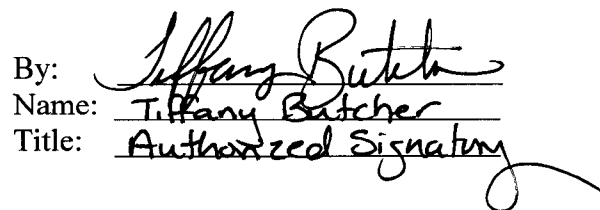 By: Tiffany Butcher
Name: Tiffany Butcher
Title: Authorized Signatory